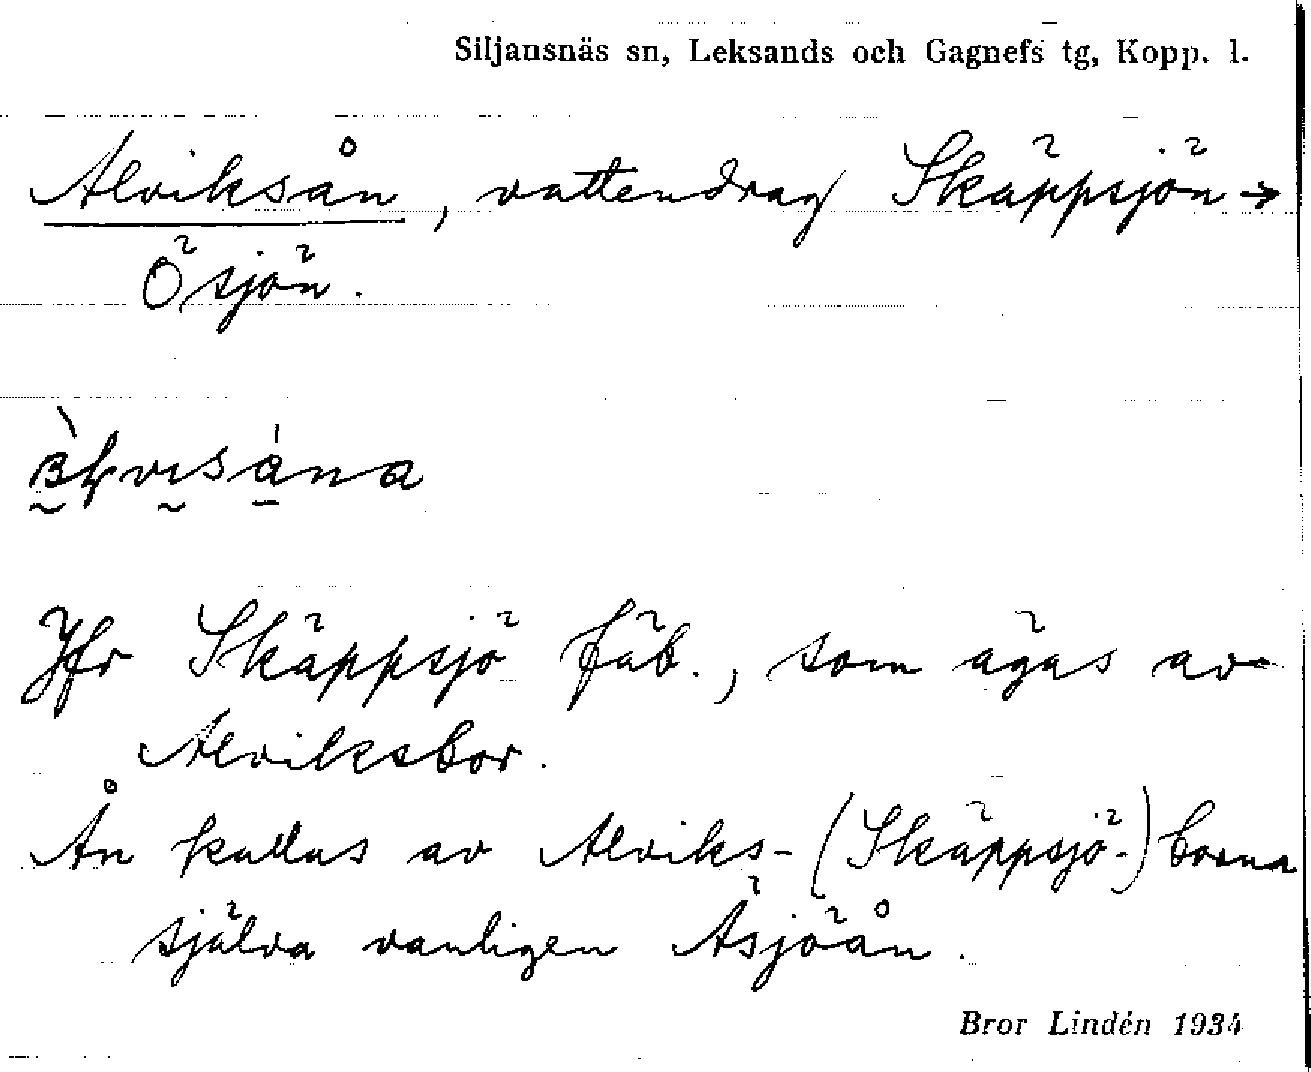 Siljansnäs sn, Leksands och Gagnefs tg, Kopp. l.
Alviksån, vattendrag Skäppsjön →
Ösjön.
Jfr Skäppsjö fäb., som ägas av
Alviksbor.
Ån kallas av Alviks- (Skäppsjö-) borna
själva vanligen Äsjöån.
Bror Lindén 1934